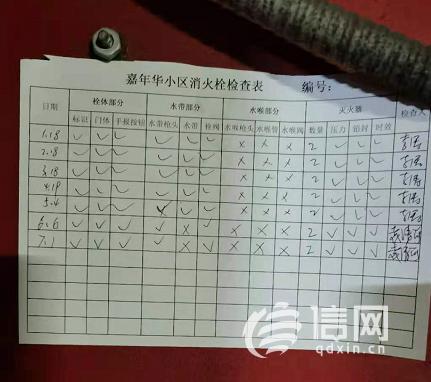 嘉年华小区消火栓检查表 编号:
日期 栓体部分 水带部分 水喉部分 灭火器 检查人
标识 门体 手报按钮 水带枪头 水带 栓阀 水喉枪头 水喉管 水喉阀 数量 压力 铅封 时效
1.18 ✓ ✓ ✓ ✓ ✓ ✓ × × × 2 ✓ ✓ ✓
2.18 ✓ ✓ ✓ ✓ ✓ ✓ × × × 2 ✓ ✓ ✓
3.18 ✓ ✓ ✓ ✓ ✓ ✓ × × × 2 ✓ ✓ ✓
4.19 ✓ ✓ ✓ ✓ ✓ ✓ × × × 2 ✓ ✓ ✓
5.4 ✓ ✓ ✓ ✓ ✓ ✓ × × × 2 ✓ ✓ ✓
6.6 ✓ ✓ ✓ ✓ × ✓ × × × 2 ✓ ✓ ✓
7.1 ✓ ✓ ✓ ✓ × ✓ × × × 2 ✓ ✓ ✓
信网
qdxin.cn